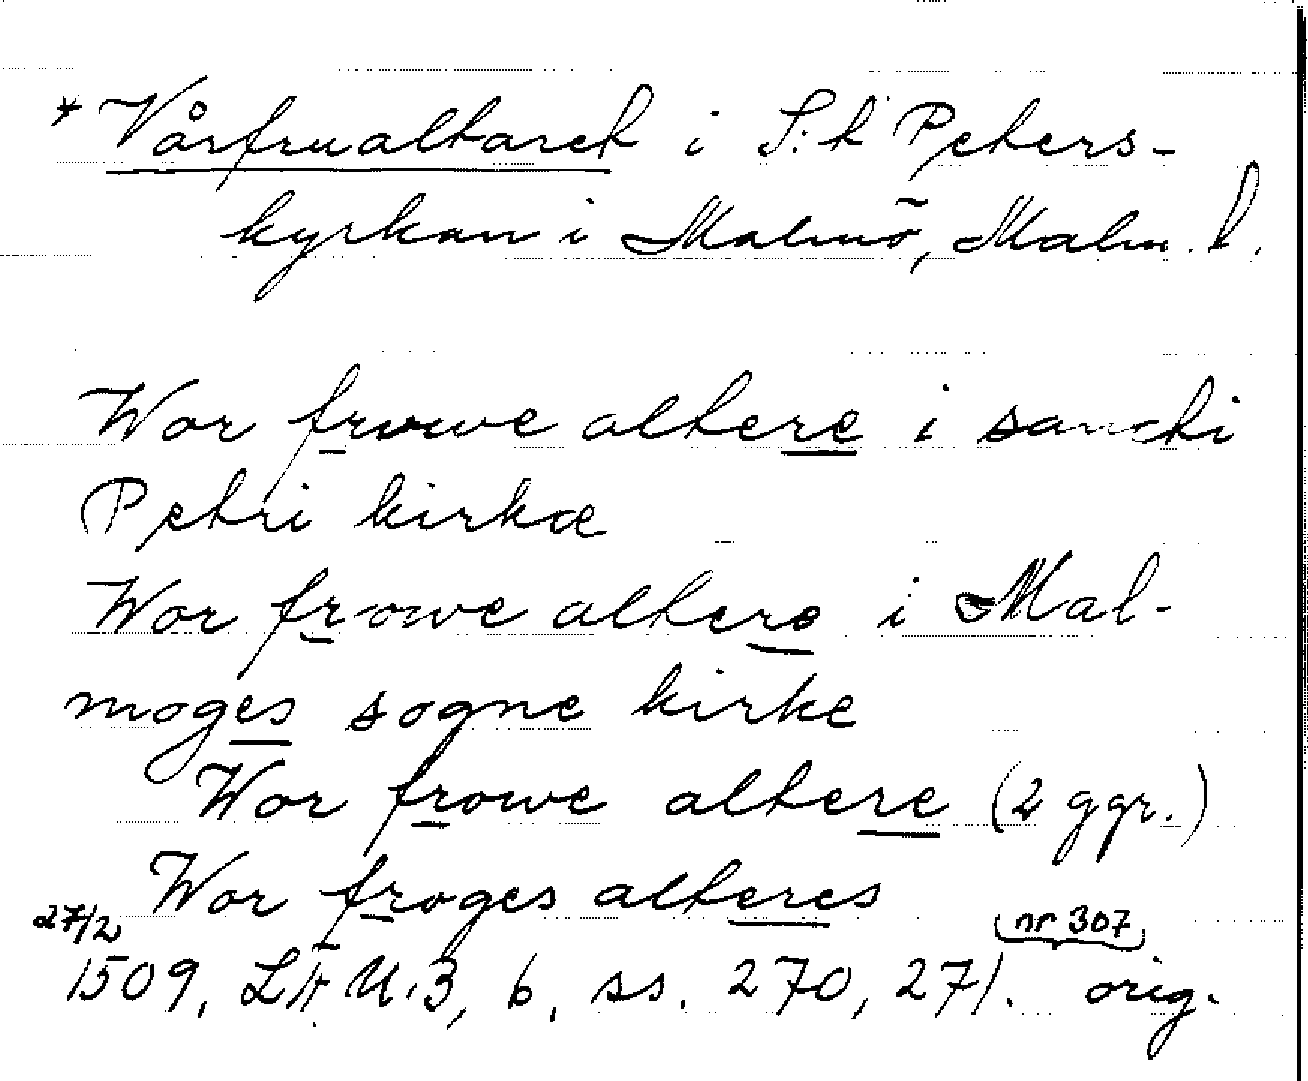 * Vårfrualtaret i S:t Peters-
kyrkan i Malmö, Malm. l.
Wor frowe altere i sancti
Petri kirkæ
Wor frowe altere i Mal-
moges sogne kirke
Wor frowe altere (2 ggr.)
Wor froges alteres
27/2 nr 307
1509, LÄU. 3, b, ss. 270, 271. orig.